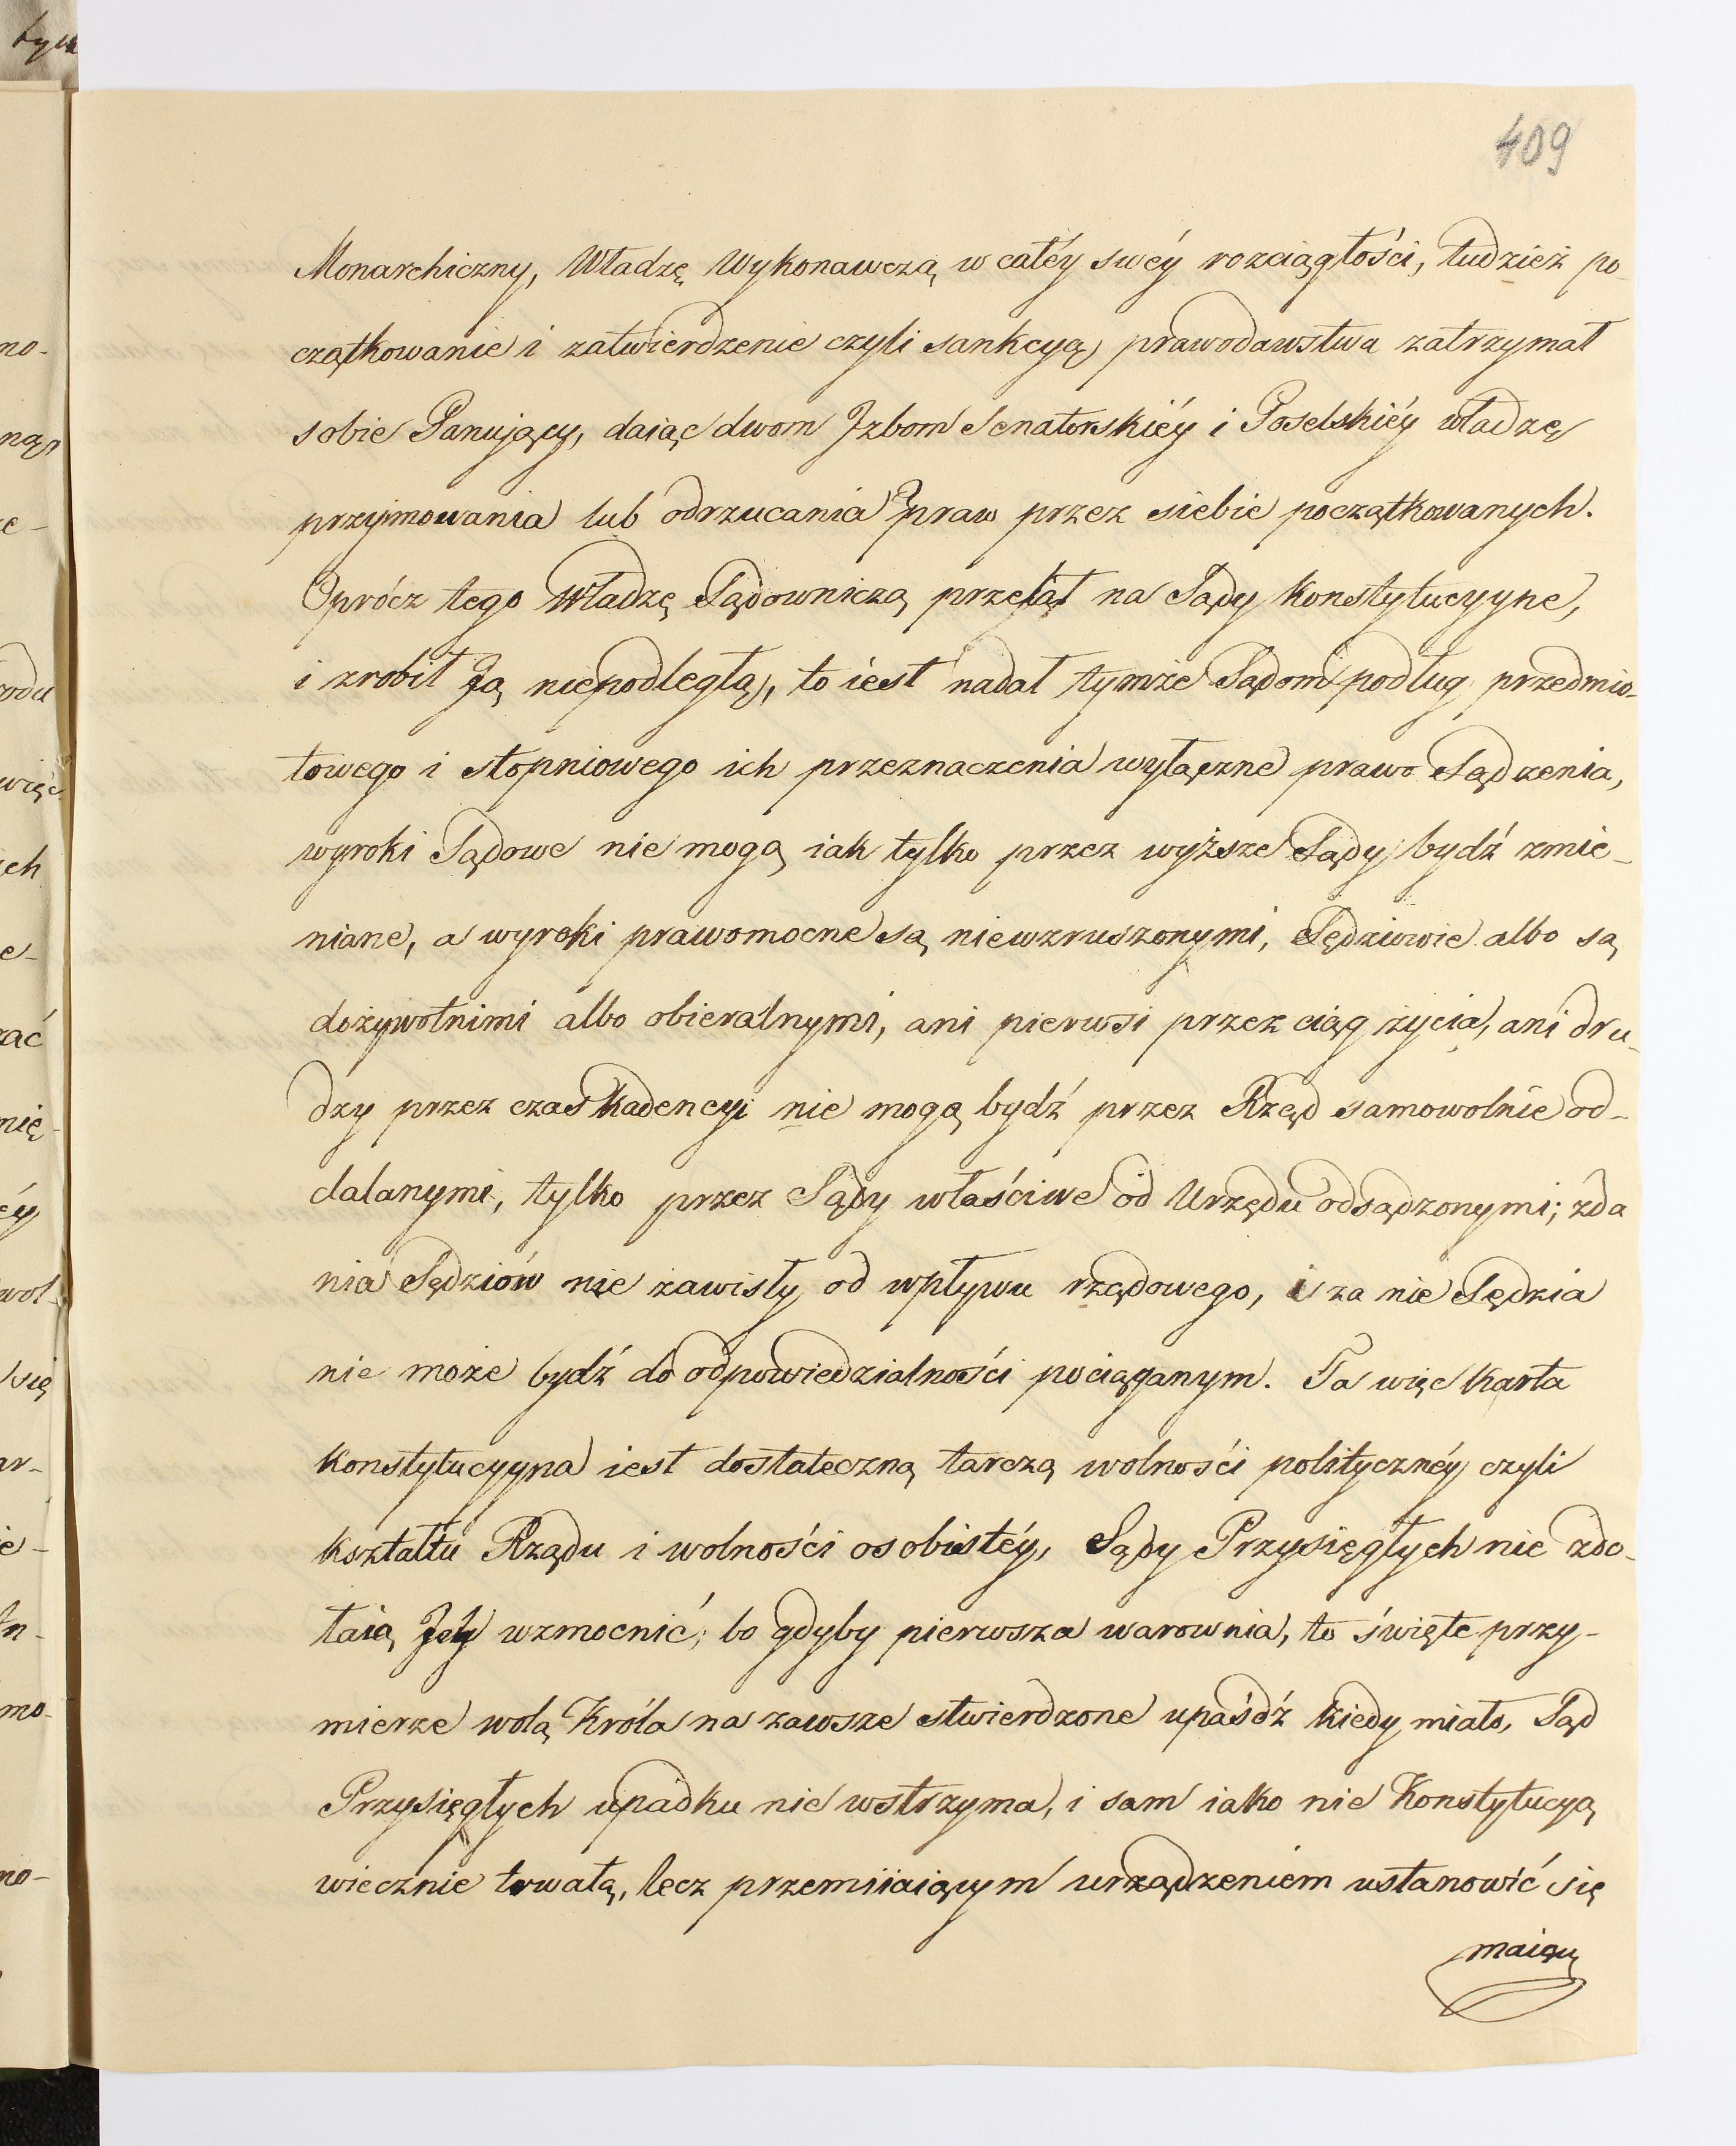 409
Monarchiczny, Władzę Wykonawczą w całéy swéy rozciągłości, tudzież po-
czątkowanie i zatwierdzenie czyli sankcyą prawodawstwa zatrzymał
sobie Panujący, daiąc dwom Izbom Senatorskiéy i Poselskiéy władzę
przyjmowania lub odrzucania praw przez siebie początkowanych.
Oprócz tego Władzę Sądowniczą przelał na Sądy Konstytucyyne,
i zrobił Ją niepodległą, to iest nadał tymże Sądom podług przedmio-
towego i stopniowego ich przeznaczenia wyłączne prawo Sądzenia,
wyroki Sądowe nie mogą iak tylko przez wyższe Sądy bydź zmie-
niane, a wyroki prawomocne są niewzruszonymi, Sędziowie albo są
dożywotnimi albo obieralnymi, ani pierwsi przez ciąg życia, ani dru-
dzy przez czas Kadencyi nie mogą bydź przez Rząd samowolnie od-
dalanymi, tylko przez Sądy właściwe od Urzędu odsądzonymi; zda
nia Sędziów nie zawisły od wpływu rządowego, i za nie Sędzia
nie może bydź do odpowiedzialności pociąganym. Ta więc Karta
Konstytucyyna iest dostateczną tarczą wolności politycznéy czyli
kształtu Rządu i wolności osobistéy, Sądy Przysięgłych nie zdo-
łaią Jéy wzmocnić; bo gdyby pierwsza warownia, to święte przy-
mierze wolą Króla na zawsze stwierdzone upaśdź kiedy miało, Sąd
Przysięgłych upadku nie wstrzyma, i sam iako nie Konstytucyą
wiecznie trwałą, lecz przemiiaiącym urządzeniem ustanowić się
maiący